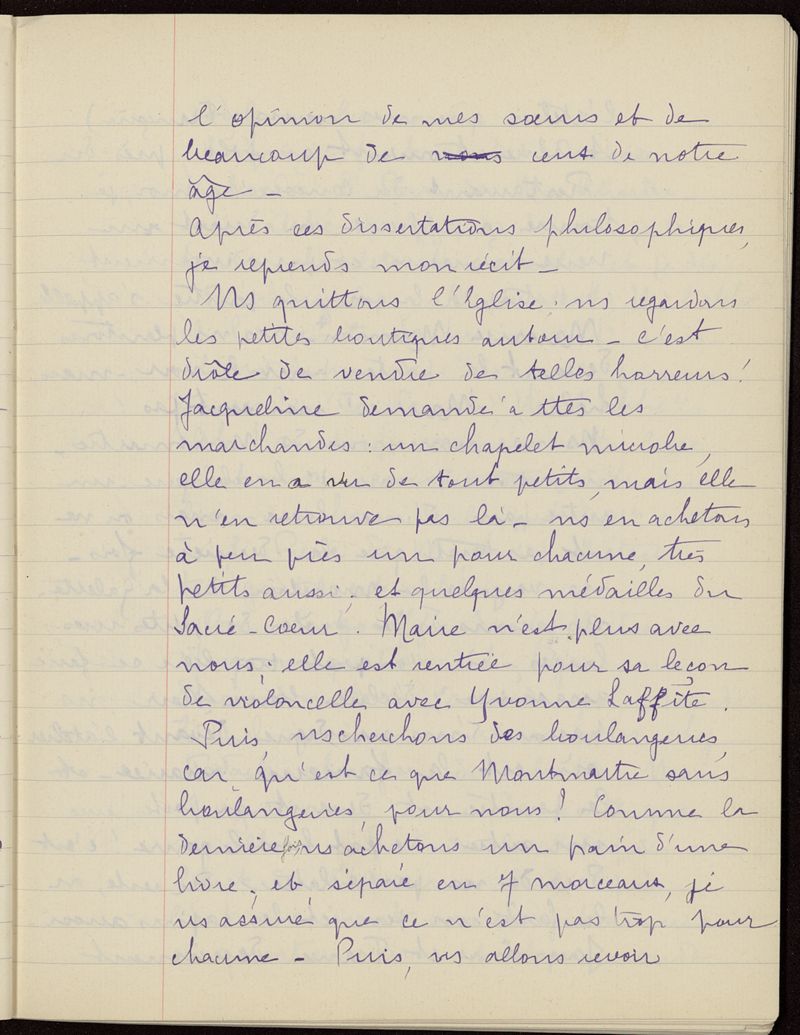 l'opinion de mes sœurs et de
beaucoup de nous ceux de notre
âge –
Après ces dissertations philosophiques,
je reprends mon récit –
Ns quittons l'Eglise. ns regardons
les petites boutiques autour – c'est
drôle de vendre de telles horreurs !
Jacqueline demande à ttes les
marchandes : un chapelet microbe,
elle en a vu de tout petits, mais elle
n'en retrouve pas là – ns en achetons
à peu près un pour chacune, très
petits aussi, et quelques médailles du
Sacré-Coeur. Marie n'est plus avec
nous ; elle est rentrée pour sa leçon
de violoncelle avec Yvonne Laffite.
Puis, ns cherchons des boulangeries,
car qu'est ce que Montmartre sans
boulangeries, pour nous ! Comme la
dernière fois ns achetons un pain d'une
livre, et séparé en 7 morceaux, je
vs assure que ce n'est pas trop pour
chacune – Puis, ns allons revoir